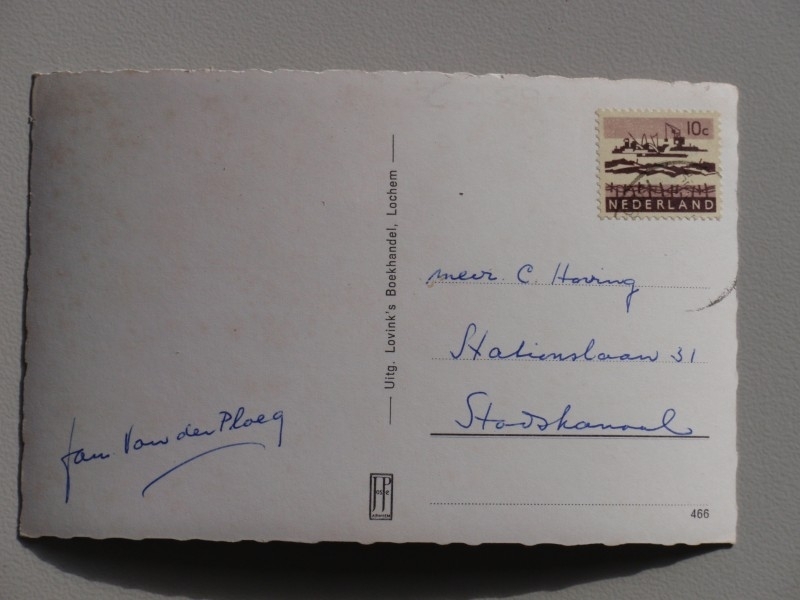 10c
NEDERLAND
Uitg. Lovink's Boekhandel, Lochem
mevr. C. Hoving
Stationslaan 31
Stadskanaal
fam Van der Ploeg
JP
466